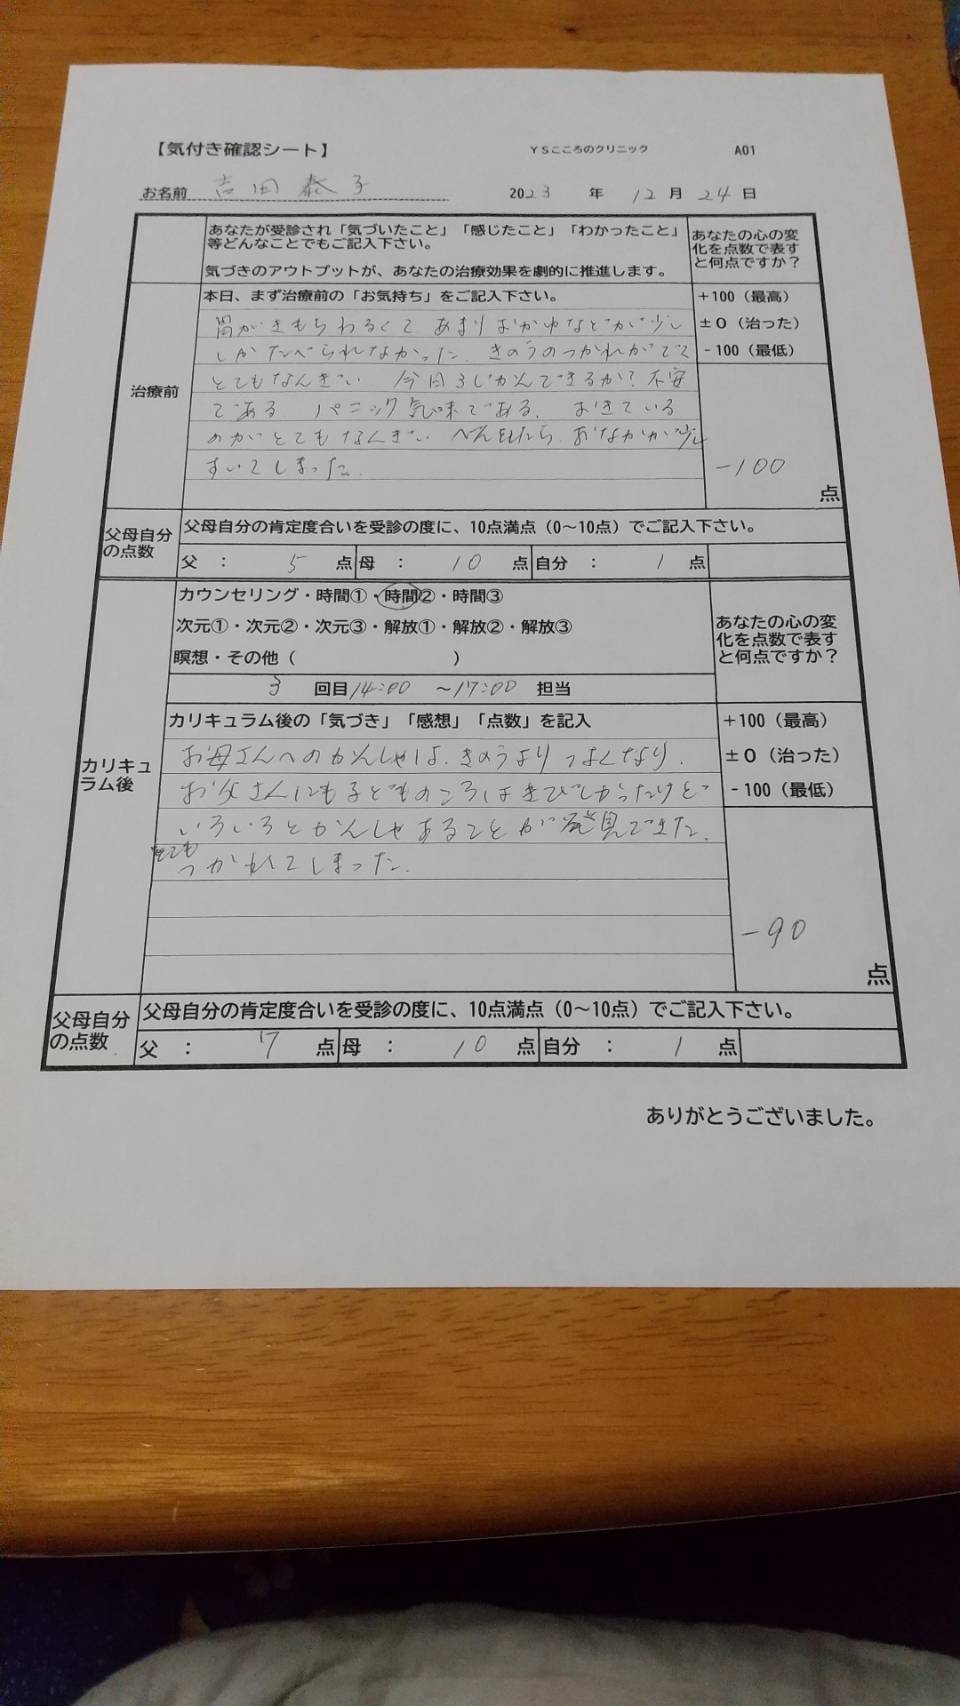 【気付き確認シート】 YSこころのクリニック A01
お名前 吉田泰子 2023 年 12 月 24 日
あなたが受診され「気づいたこと」「感じたこと」「わかったこと」
等どんなことでもご記入下さい。
気づきのアウトプットが、あなたの治療効果を劇的に推進します。
あなたの心の変
化を点数で表す
と何点ですか？
治療前
本日、まず治療前の「お気持ち」をご記入下さい。
胃がきもちわるくて あまりおかゆなどが少し
しかたべられなかった. きのうのつかれがでて
とてもなんぎい 今日3じかんできるか? 不安
である. パニック気味である. おきている
のがとてもなんぎい べんをしたら、おなかが少し
すいてしまった.
+100（最高）
±0（治った）
-100（最低）
-100
点
父母自分
の点数
父母自分の肯定度合いを受診の度に、10点満点（0～10点）でご記入下さい。
父 ： 5 点 母 ： 10 点 自分 ： 1 点
カリキュ
ラム後
カウンセリング・時間①・時間②・時間③
次元①・次元②・次元③・解放①・解放②・解放③
瞑想・その他（ ）
3 回目 14:00 ～17:00 担当
あなたの心の変
化を点数で表す
と何点ですか？
カリキュラム後の「気づき」「感想」「点数」を記入
お母さんへのかんしゃは、きのうよりつよくなり、
お父さんにも子どものころはきびしかったけど
いろいろとかんしゃあることが発見できた.
とても
つかれてしまった.
+100（最高）
±0（治った）
-100（最低）
-90
点
父母自分
の点数
父母自分の肯定度合いを受診の度に、10点満点（0～10点）でご記入下さい。
父 ： 7 点 母 ： 10 点 自分 ： 1 点
ありがとうございました。